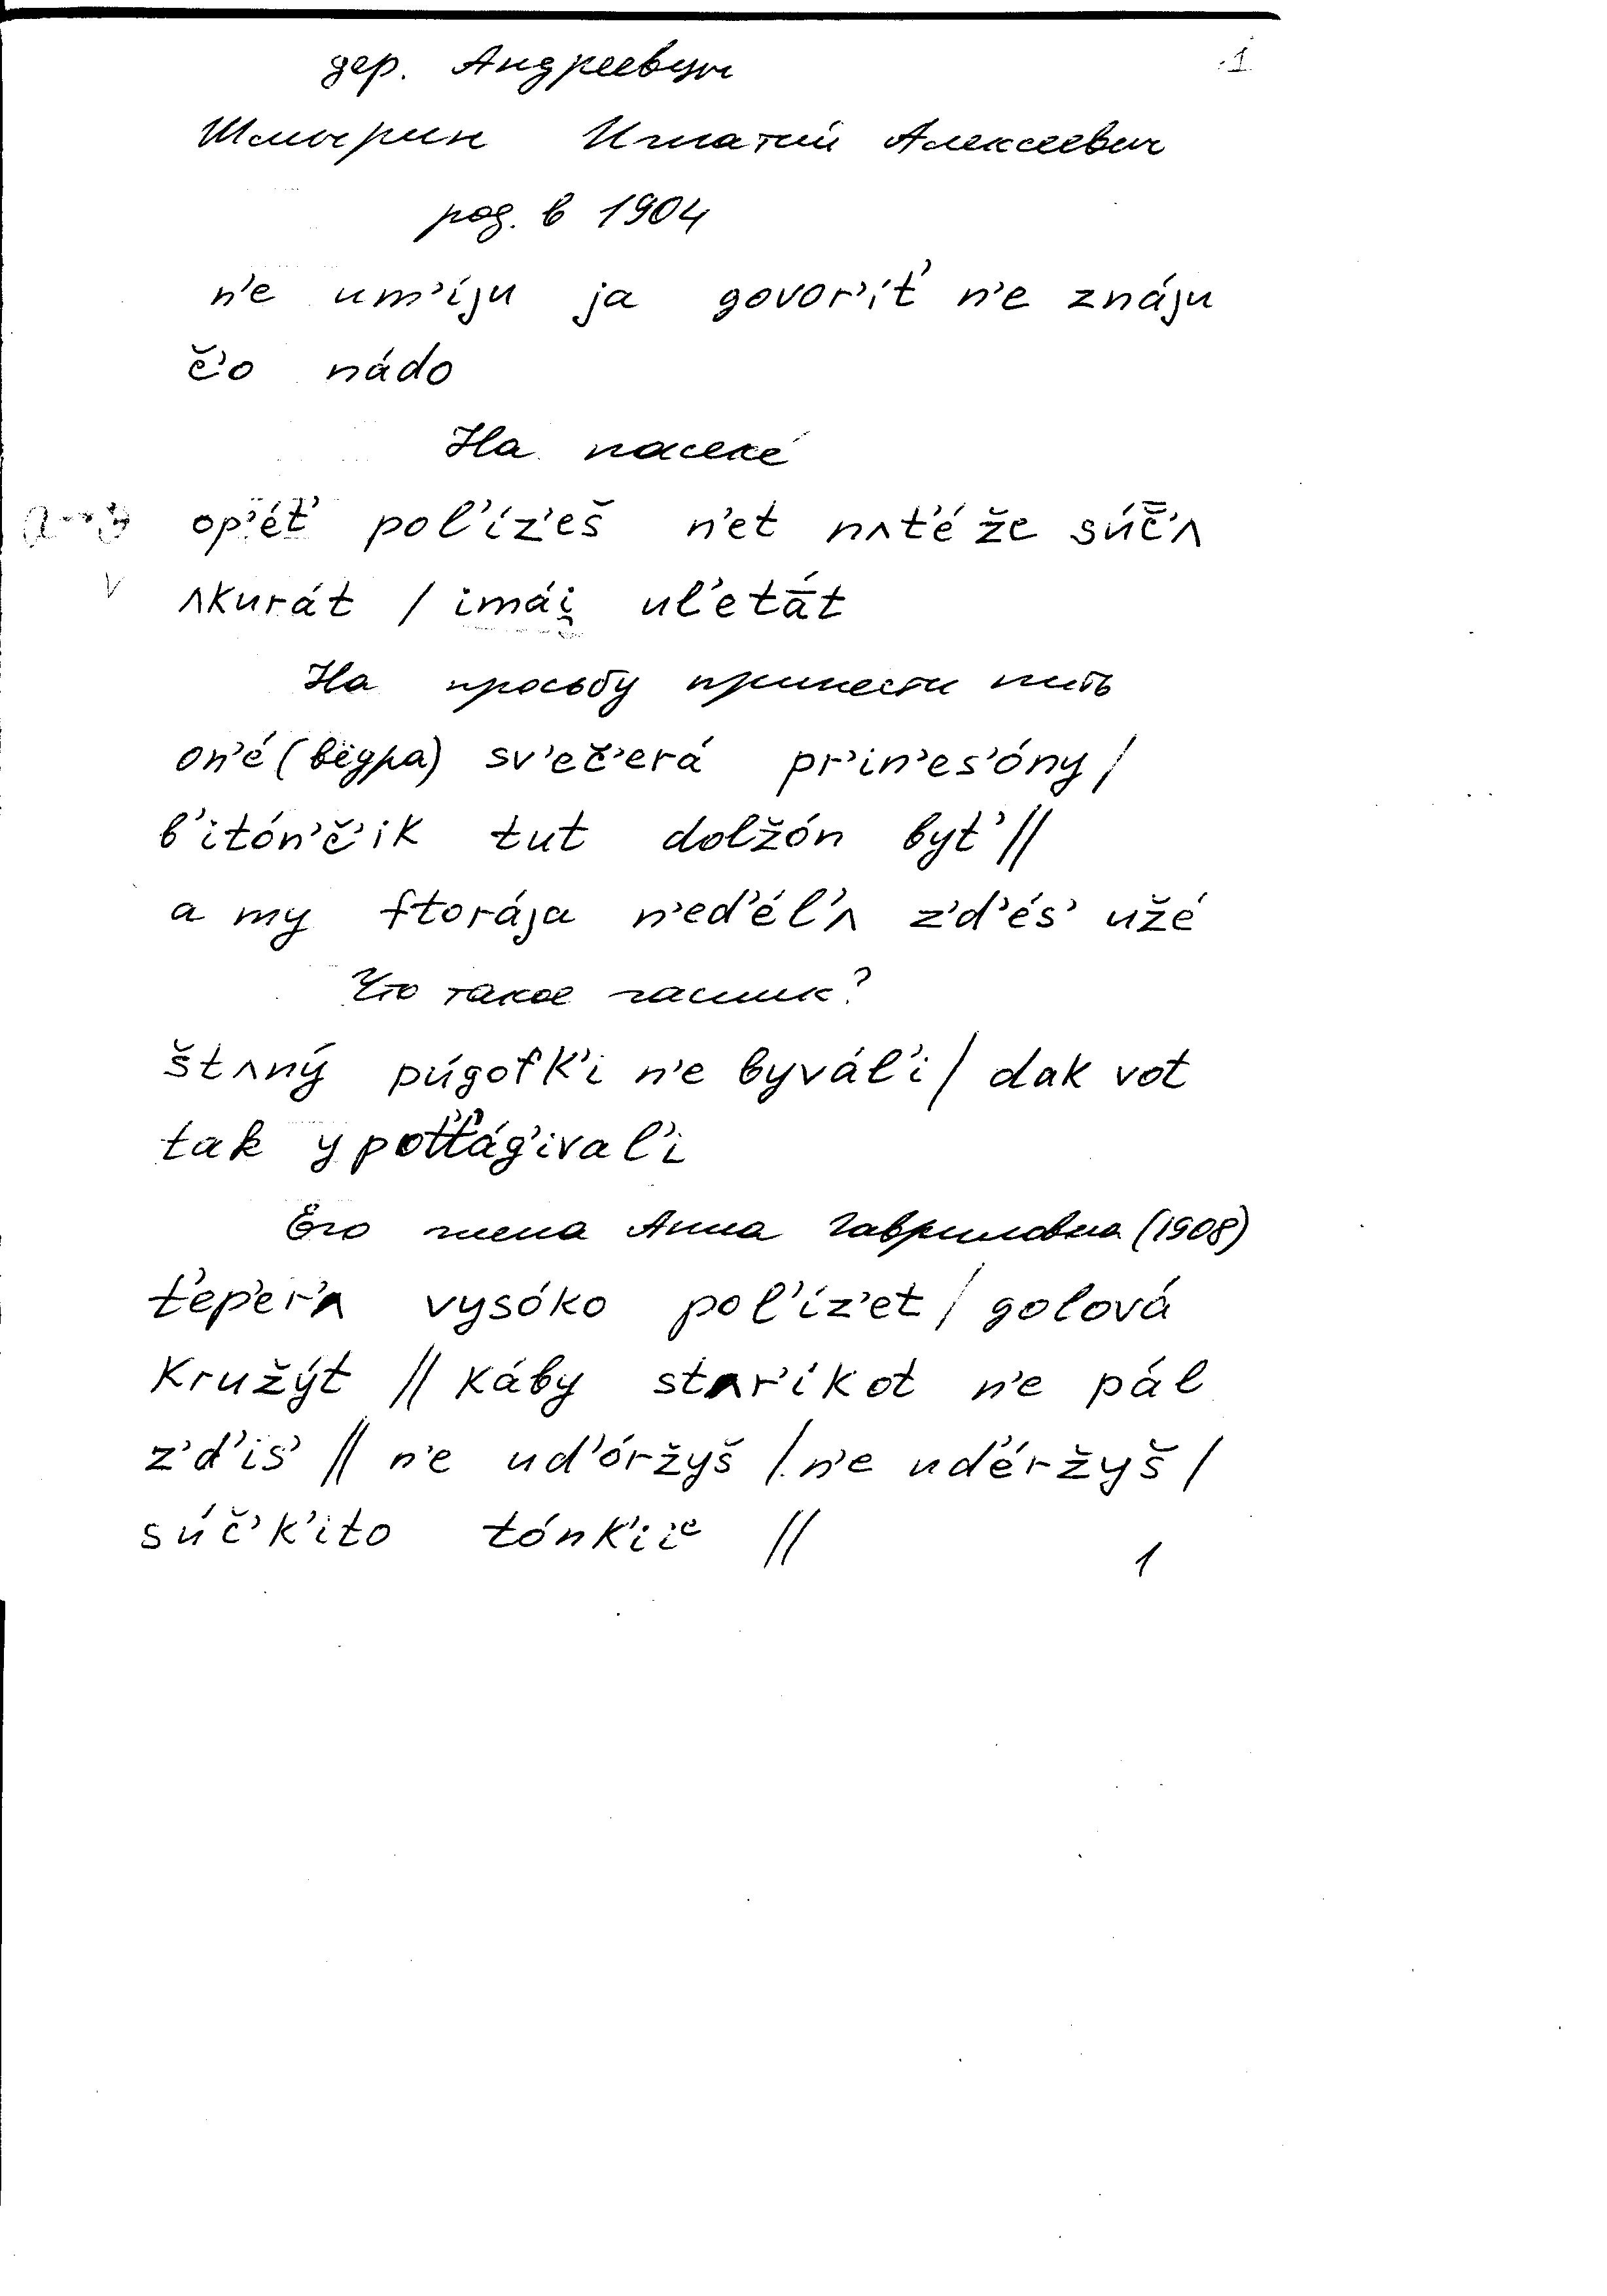 1
дер. Андреевцы
Шмырин Игнатий Алексеевич
род. в 1904
n'e um'íju ja govor'ít' n'e znáju
č'o nádo
На пасеке
op'ét' pol'íz'eš n'et nʌt'éže súč̄'ʌ
ʌkurát / imái̯ ul'etā́t
На просьбу принести пить
on'é (вёдра) sv'eč'erá pr'in'es'óny /
b'itón'č'ik tut dolžón byt' //
a my ftorája n'ed'él'ʌ z'd'és' užé
Что такое гасник?
štʌný púgofk'i n'e byvál'i / dak vot
tak y pot't'ág'ival'i
Его жена Анна Гавриловна (1908)
t'ep'er'ʌ vysóko pol'íz'et / golová
kružýt // káby stʌr'ikot n'e pál
z'd'is' // n'e ud'óržyš / n'e ud'éržyš /
súč'k'ito tónk'iiᵉ //
1